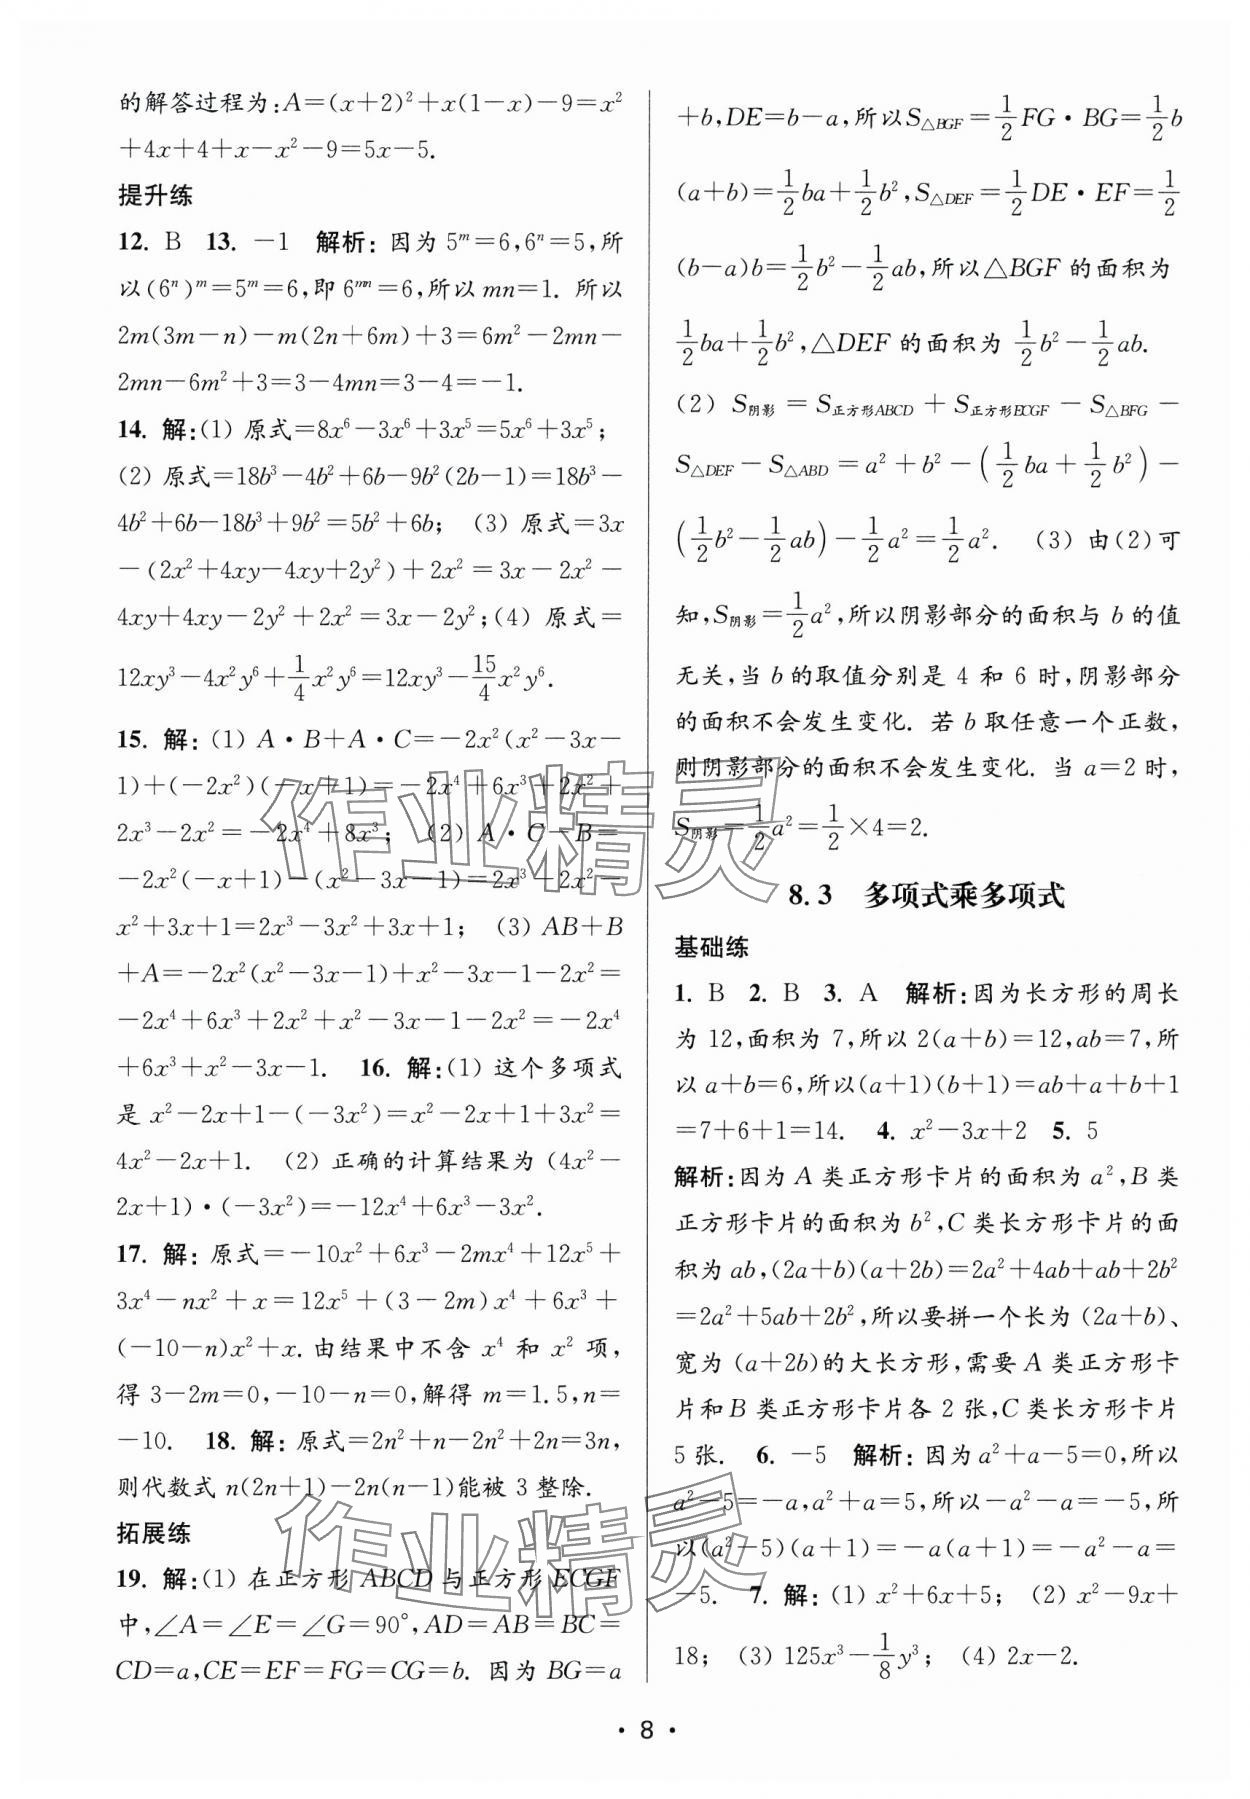 的解答过程为:A=(x+2)²+x(1-x)-9=x²
+4x+4+x-x²-9=5x-5.
提升练
12. B 13. -1 解析:因为 5ᵐ=6,6ⁿ=5,所
以(6ⁿ)ᵐ=5ᵐ=6,即 6ᵐⁿ=6,所以 mn=1. 所以
2m(3m-n)-m(2n+6m)+3=6m²-2mn-
2mn-6m²+3=3-4mn=3-4=-1.
14. 解:(1) 原式=8x⁶-3x⁶+3x⁵=5x⁶+3x⁵;
(2) 原式=18b³-4b²+6b-9b²(2b-1)=18b³-
4b²+6b-18b³+9b²=5b²+6b; (3) 原式=3x
-(2x²+4xy-4xy+2y²)+2x²=3x-2x²-
4xy+4xy-2y²+2x²=3x-2y²;(4) 原式=
12xy³-4x²y⁶+1/4x²y⁶=12xy³-15/4x²y⁶.
15. 解:(1) A·B+A·C=-2x²(x²-3x-
1)+(-2x²)(-x+1)=-2x⁴+6x³+2x²+
2x³-2x²=-2x⁴+8x³; (2) A·C-B=
-2x²(-x+1)-(x²-3x-1)=2x³-2x²-
x²+3x+1=2x³-3x²+3x+1; (3) AB+B
+A=-2x²(x²-3x-1)+x²-3x-1-2x²=
-2x⁴+6x³+2x²+x²-3x-1-2x²=-2x⁴
+6x³+x²-3x-1. 16. 解:(1) 这个多项式
是 x²-2x+1-(-3x²)=x²-2x+1+3x²=
4x²-2x+1. (2) 正确的计算结果为(4x²-
2x+1)·(-3x²)=-12x⁴+6x³-3x².
17. 解:原式=-10x²+6x³-2mx⁴+12x⁵+
3x⁴-nx²+x=12x⁵+(3-2m)x⁴+6x³+
(-10-n)x²+x.由结果中不含 x⁴ 和 x² 项,
得 3-2m=0,-10-n=0,解得 m=1.5,n=
-10. 18. 解:原式=2n²+n-2n²+2n=3n,
则代数式 n(2n+1)-2n(n-1)能被 3 整除.
拓展练
19. 解:(1) 在正方形 ABCD 与正方形 ECGF
中,∠A=∠E=∠G=90°,AD=AB=BC=
CD=a,CE=EF=FG=CG=b. 因为 BG=a
+b,DE=b-a,所以S△BGF=1/2FG·BG=1/2b
(a+b)=1/2ba+1/2b²,S△DEF=1/2DE·EF=1/2
(b-a)b=1/2b²-1/2ab,所以△BGF 的面积为
1/2ba+1/2b²,△DEF 的面积为 1/2b²-1/2ab.
(2) S阴影=S正方形ABCD+S正方形ECGF-S△BFG-
S△DEF-S△ABD=a²+b²-(1/2ba+1/2b²)-
(1/2b²-1/2ab)-1/2a²=1/2a². (3) 由(2)可
知,S阴影=1/2a²,所以阴影部分的面积与 b 的值
无关,当 b 的取值分别是 4 和 6 时,阴影部分
的面积不会发生变化. 若 b 取任意一个正数,
则阴影部分的面积不会发生变化. 当 a=2 时,
S阴影=1/2a²=1/2×4=2.
8.3 多项式乘多项式
基础练
1. B 2. B 3. A 解析:因为长方形的周长
为 12,面积为 7,所以 2(a+b)=12,ab=7,所
以 a+b=6,所以(a+1)(b+1)=ab+a+b+1
=7+6+1=14. 4. x²-3x+2 5. 5
解析:因为 A 类正方形卡片的面积为 a²,B 类
正方形卡片的面积为 b²,C 类长方形卡片的面
积为 ab,(2a+b)(a+2b)=2a²+4ab+ab+2b²
=2a²+5ab+2b²,所以要拼一个长为 (2a+b)、
宽为 (a+2b)的大长方形,需要 A 类正方形卡
片和 B 类正方形卡片各 2 张,C 类长方形卡片
5 张. 6. -5 解析:因为 a²+a-5=0,所以
a²-5=-a,a²+a=5,所以-a²-a=-5,所
以(a²-5)(a+1)=-a(a+1)=-a²-a=
-5. 7. 解:(1) x²+6x+5; (2) x²-9x+
18; (3) 125x³-1/8y³; (4) 2x-2.
·8·
作业精灵
作业精灵